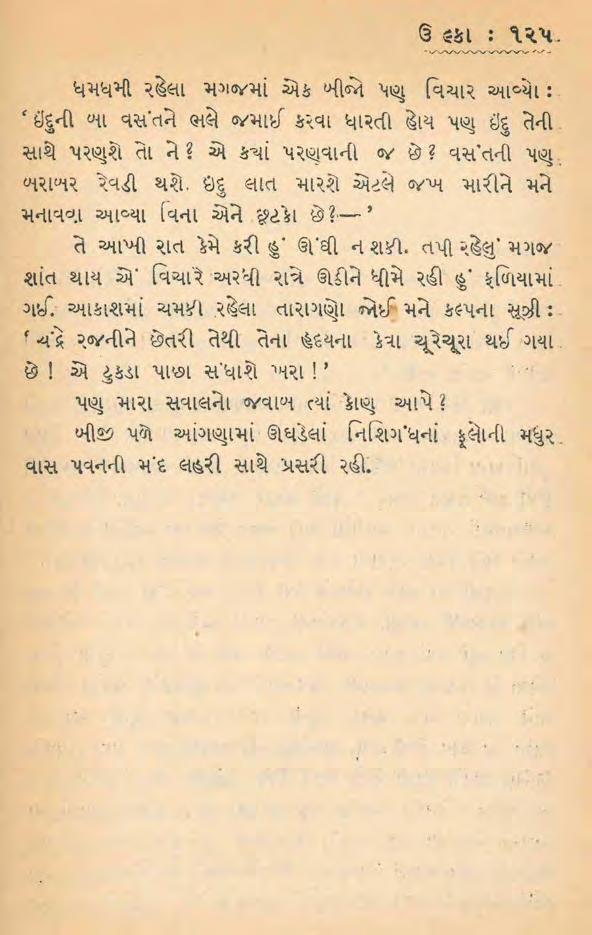 ઉ લ્કા : ૧૨૫
ધમધમી રહેલા મગજમાં એક બીજો પણ વિચાર આવ્યો :
‘ ઇંદુની બા વસંતને ભલે જમાઈ કરવા ધારતી હોય પણ ઇંદુ તેની
સાથે પરણશે તો ને ? એ ક્યાં પરણવાની જ છે ? વસંતની પણ
બરાબર રેવડી થશે. ઇંદુ લાત મારશે એટલે જખ મારીને મને
મનાવવા આવ્યા વિના એને છૂટકો છે ?—’
તે આખી રાત કેમે કરી હું ઊંઘી ન શકી. તપી રહેલું મગજ
શાંત થાય એ વિચારે અરધી રાત્રે ઊઠીને ધીમે રહી હું ફળિયામાં
ગઈ. આકાશમાં ચમકી રહેલા તારાગણો જોઈ મને કલ્પના સૂઝી :
‘ ચંદ્રે રજનીને છેતરી તેથી તેના હૃદયના કેવા ચૂરેચૂરા થઈ ગયા
છે ! એ ટુકડા પાછા સંધાશે ખરા ! ’
પણ મારા સવાલનો જવાબ ત્યાં કોણ આપે ?
બીજી પળે આંગણામાં ઊઘડેલાં નિશિગંધનાં ફૂલોની મધુર
વાસ પવનની મંદ લહરી સાથે પ્રસરી રહી.